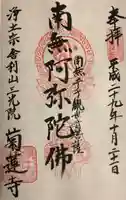 奉拝
平成二十九年十月二十二日
南無阿弥陀佛
浄土宗舎利山三光院
菊蓮寺